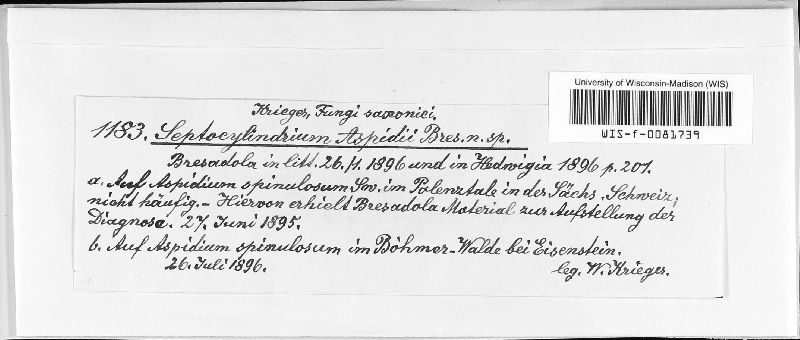 University of Wisconsin-Madison (WIS)
WIS-f-0081739
Krieger, Fungi saxonici.
1183. Septocylindrium Aspidii Bres. n. sp.
Bresadola in litt. 26./1. 1896 und in Hedwigia 1896 p. 201.
a. Auf Aspidium spinulosum Sw. im Polenztale in der Sächs. Schweiz,
nicht häufig. - Hiervon erhielt Bresadola Material zur Aufstellung der
Diagnose. 27. Juni 1895.
b. Auf Aspidium spinulosum im Böhmer-Walde bei Eisenstein.
26. Juli 1896. leg. W. Krieger.